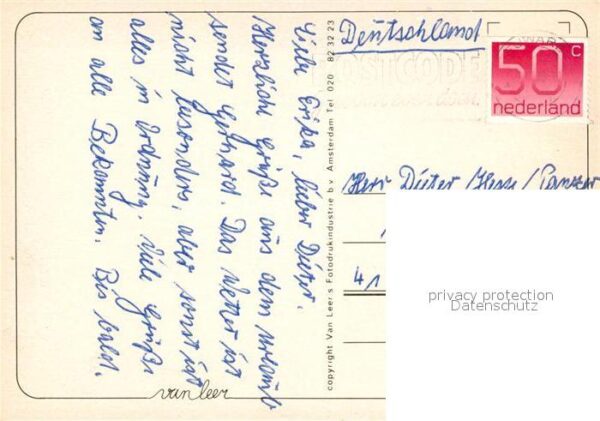 Deutschland
POSTCODE
50 c
nederland
Liebe Erika, lieber Dieter.
Herzliche Grüße aus dem Urlaub
sendet Gerhard. Das Wetter ist
nicht besonders, aber sonst ist
alles in Ordnung. Viele Grüße
an alle Bekannten. Bis bald.
copyright Van Leer's Fotodrukindustrie b.v. Amsterdam Tel. 020 - 82 32 23
Herr Dieter Hesse / Panzer
41
privacy protection
Datenschutz
van leer